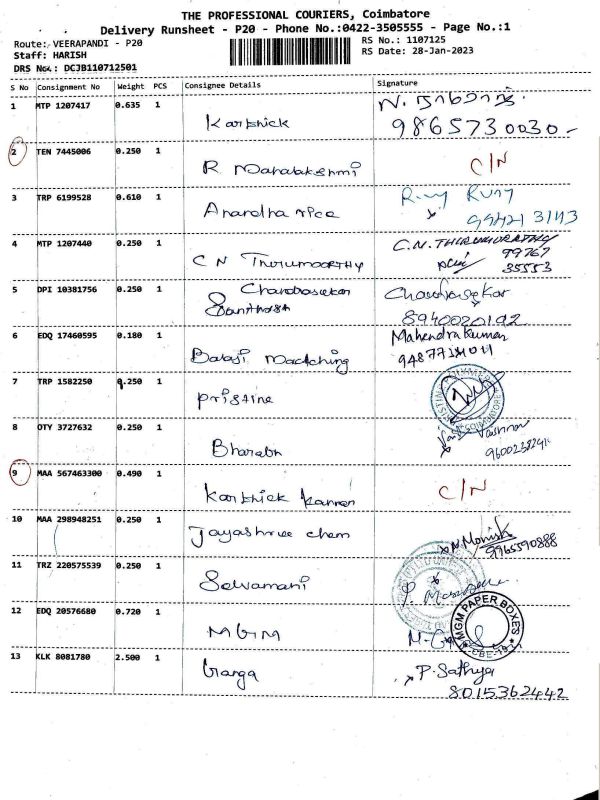 THE PROFESSIONAL COURIERS, Coimbatore
Delivery Runsheet - P20 - Phone No.:0422-3505555 - Page No.:1
Route: VEERAPANDI - P20 RS No.: 1107125
Staff: HARISH RS Date: 28-Jan-2023
DRS No.: DCJB110712501
S No Consignment No Weight PCS Consignee Details Signature
1 MTP 1207417 0.635 1
Karthick 9865730030
2 TEN 7445006 0.250 1
R Mahalakshmi C/N
3 TRP 6199528 0.610 1
Anandha rice
4 MTP 1207440 0.250 1 C.N. THIRUMORATHY
C N Thirumoorthy 99767
35553
5 DPI 10381756 0.250 1 Chandrasekar Chandrasekar
Santhosh 8940020192
6 EDQ 17460595 0.180 1 Mahendra Kumar
Balaji Matching
7 TRP 1582250 0.250 1
Pristine
8 OTY 3727632 0.250 1
Bharath
9 MAA 567463300 0.490 1
Karthick Kannan C/N
10 MAA 298948251 0.250 1
Jayashree chem 9965590888
11 TRZ 220575539 0.250 1
Selvamani
12 EDQ 20576680 0.720 1
MGM MGM PAPER BOXES
13 KLK 8081780 2.500 1
Ganga P. Sathya
8015362442